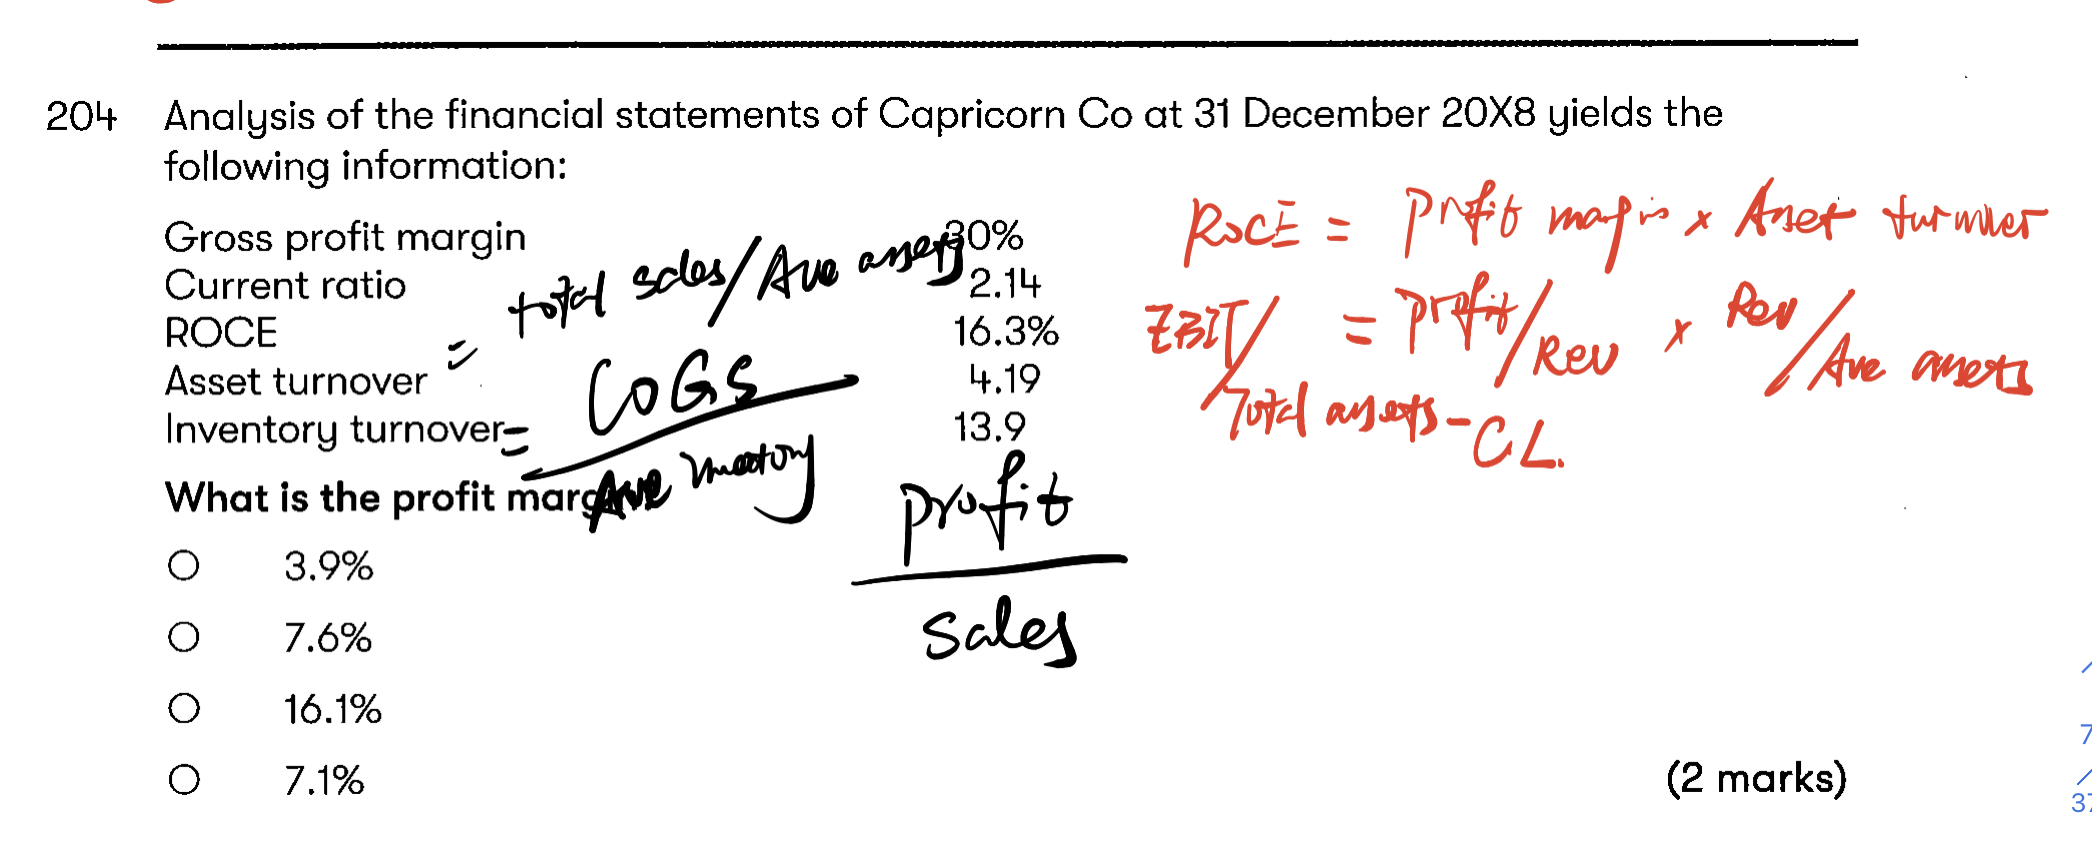 204 Analysis of the financial statements of Capricorn Co at 31 December 20X8 yields the
following information:
Gross profit margin 30%
Current ratio 2.14
ROCE 16.3%
Asset turnover 4.19
Inventory turnover 13.9
What is the profit
3.9%
7.6%
16.1%
7.1%
(2 marks)
= total sales/Ave assets
= COGS
Ave
profit
sales
ROCE = Profit margin x Asset turnover
EBIT/ = profit/Rev x Rev/Ave assets
Total assets - CL.
7
37